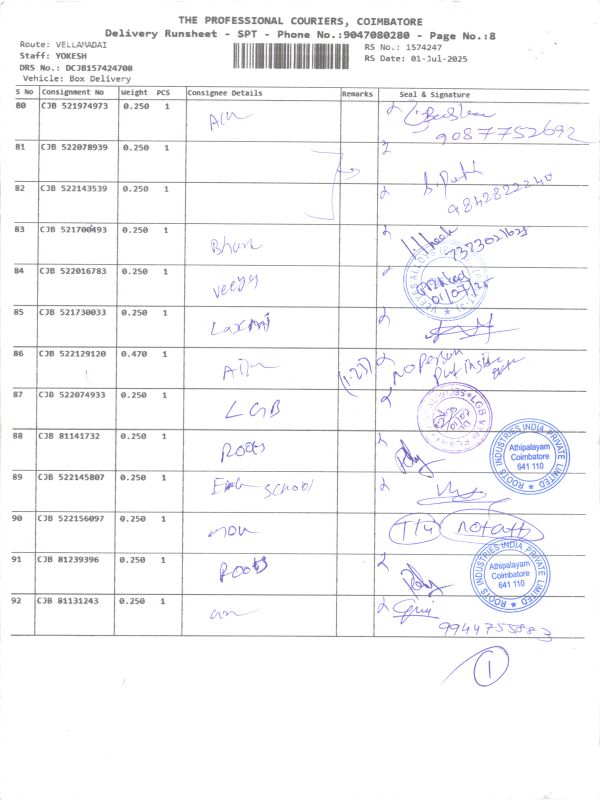 THE PROFESSIONAL COURIERS, COIMBATORE
Delivery Runsheet - SPT - Phone No.:9047080280 - Page No.:8
Route: VELLAMADAI
RS No.: 1574247
Staff: YOKESH
RS Date: 01-Jul-2025
DRS No.: DCJB157424708
Vehicle: Box Delivery
S No Consignment No Weight PCS Consignee Details Remarks Seal & Signature
80 CJB 521974973 0.250 1
9087752692
81 CJB 522078939 0.250 1
82 CJB 522143539 0.250 1
9842822240
83 CJB 521700493 0.250 1
84 CJB 522016783 0.250 1 Veeya
01/07/25
85 CJB 521730033 0.250 1 Laxmi
86 CJB 522129120 0.470 1 (1.23) No Person
Put inside
87 CJB 522074933 0.250 1 LGB
88 CJB 81141732 0.250 1 Roots
ROOTS INDUSTRIES INDIA PRIVATE LIMITED
Athipalayam
Coimbatore
641 110
89 CJB 522145807 0.250 1 School
90 CJB 522156097 0.250 1
91 CJB 81239396 0.250 1 Roots
ROOTS INDUSTRIES INDIA PRIVATE LIMITED
Athipalayam
Coimbatore
641 110
92 CJB 81131243 0.250 1
9944755883
1